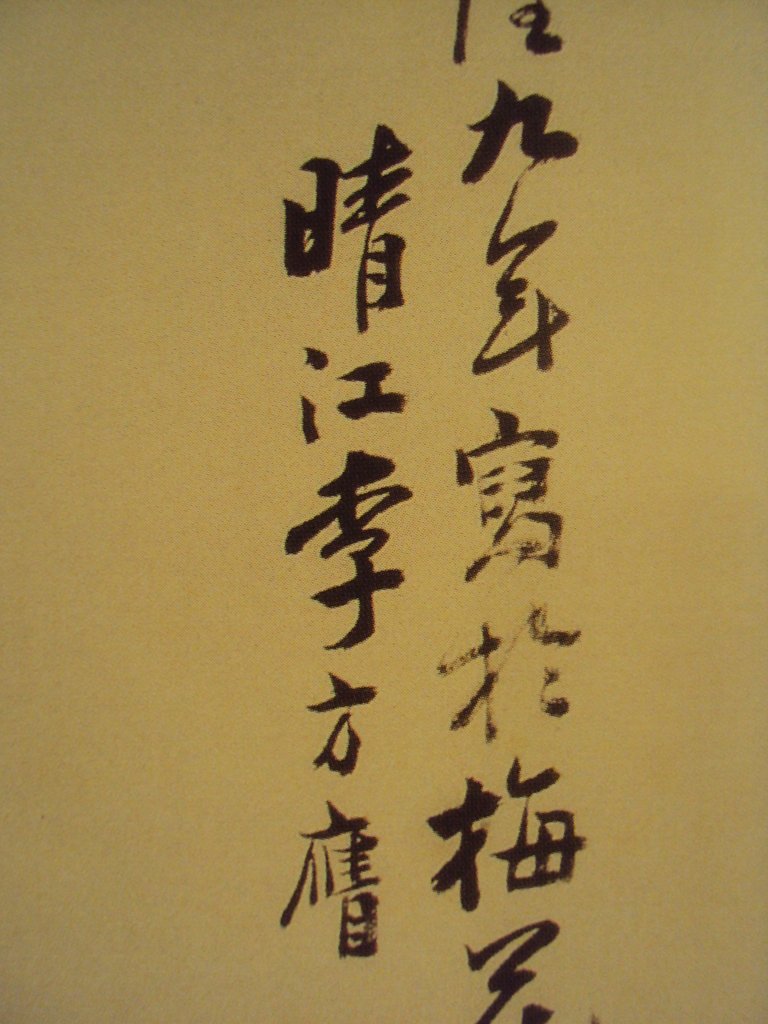 九年寫於梅花
晴江李方膺